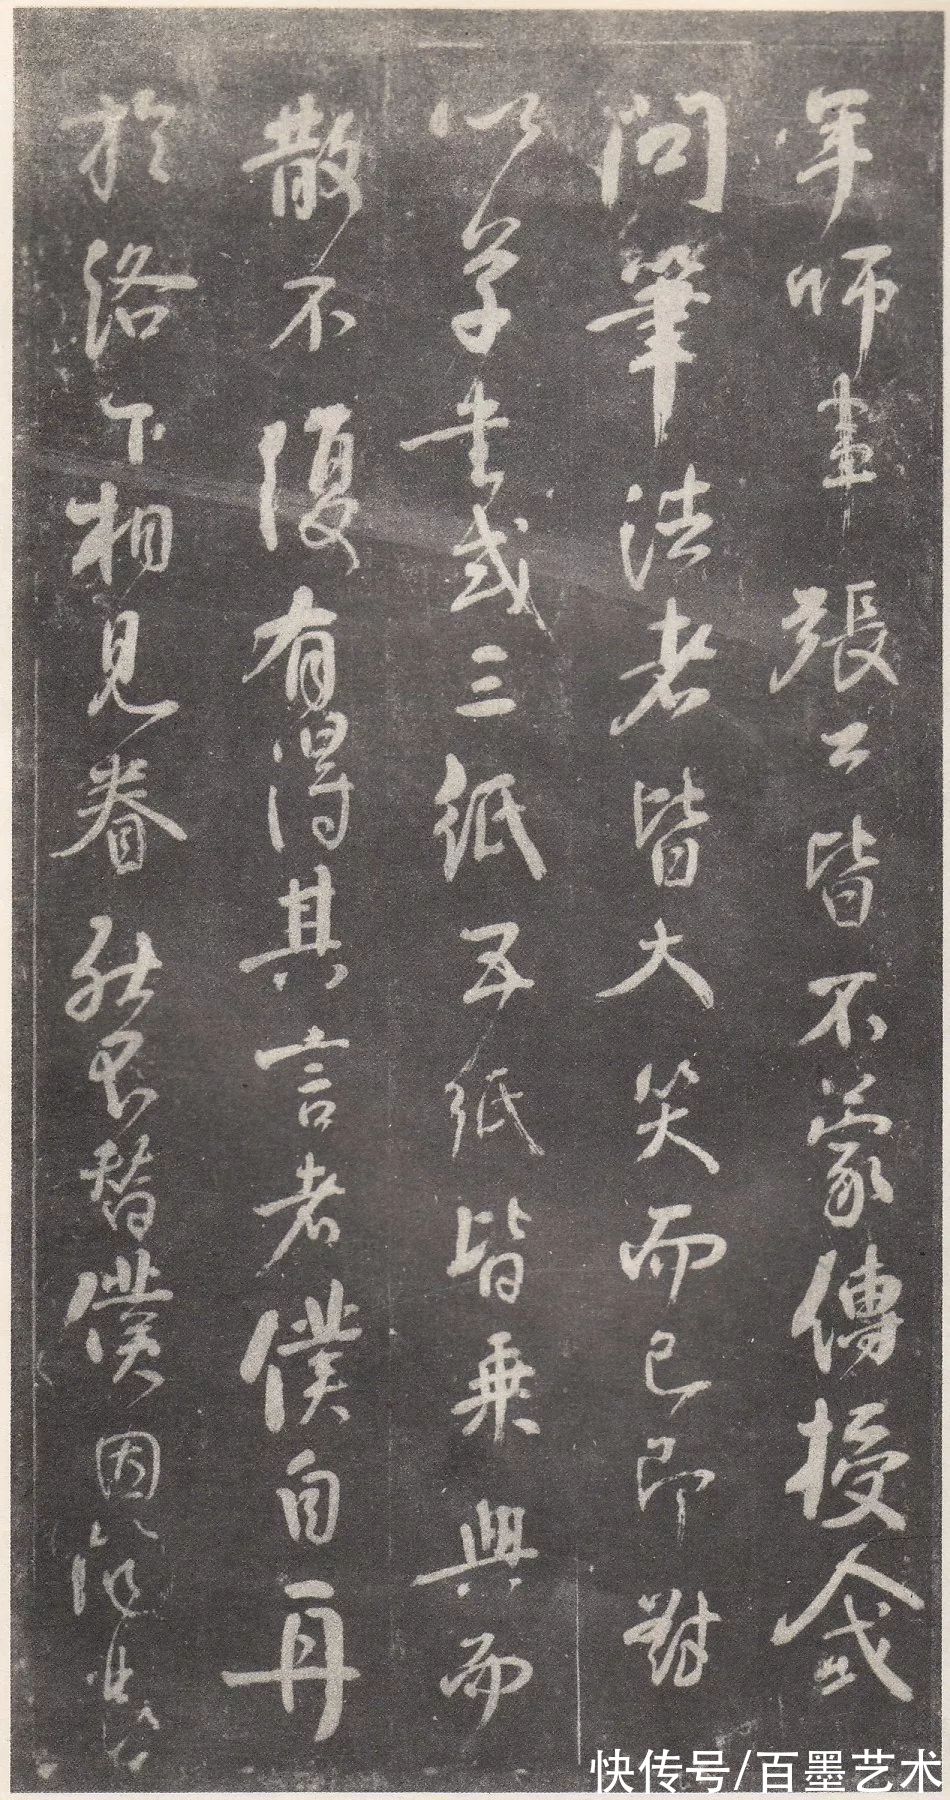 年師事張公皆不蒙傳授人或
問筆法者皆大笑而已即對
以草書或三紙五紙皆乘興而
散不復有得其言者僕自再
於洛下相見眷然不替僕因
快传号/百墨艺术